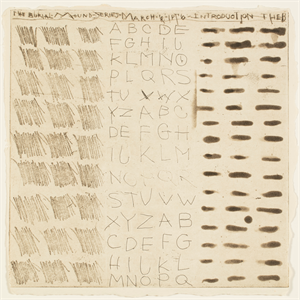 THE BURIAL MOUND SERIES MARCH INTRODUCTORY
A B C D E
F G H I J
K L M N O
P Q R S
T U W X
Y Z A B C
D E F G H
I J K L M
N
S T U V W
X Y Z A B
C D E F G
H I J K L
M N O P Q